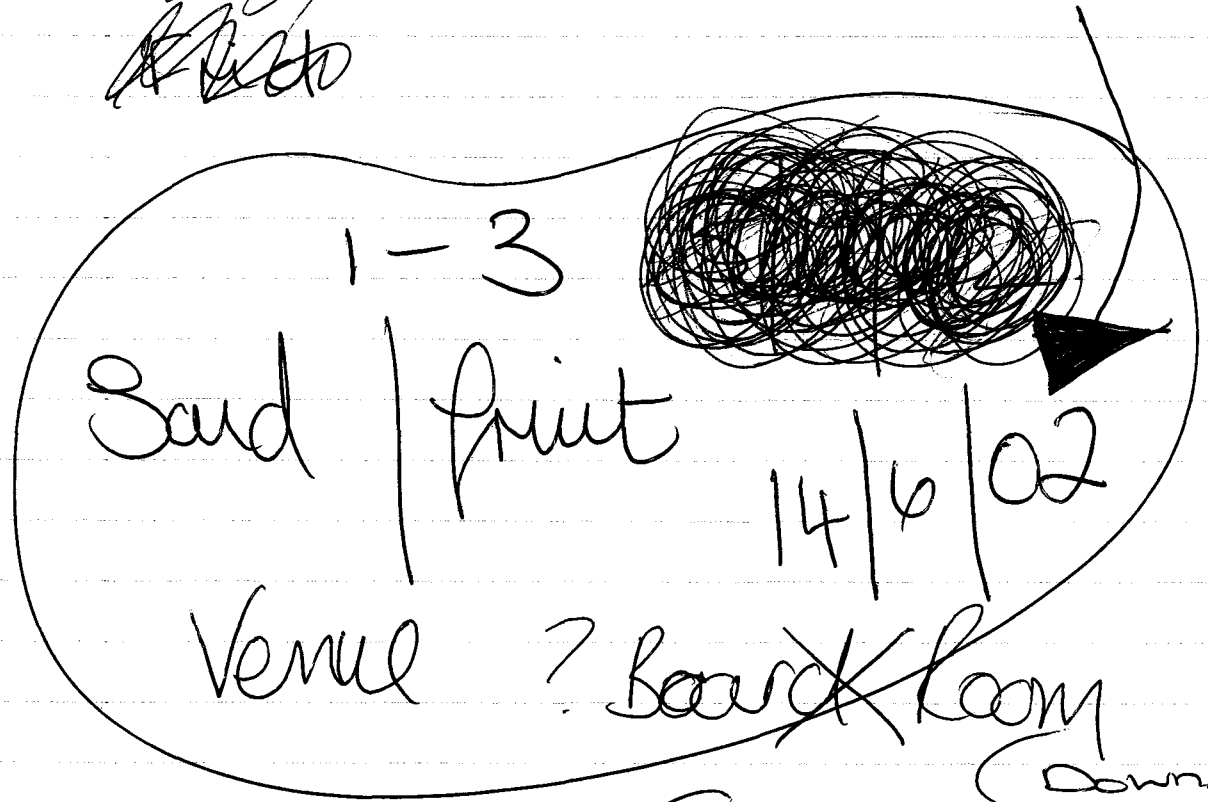 1 – 3
Sand | fruit
14/6/02
Venue ? Board Room
(Down